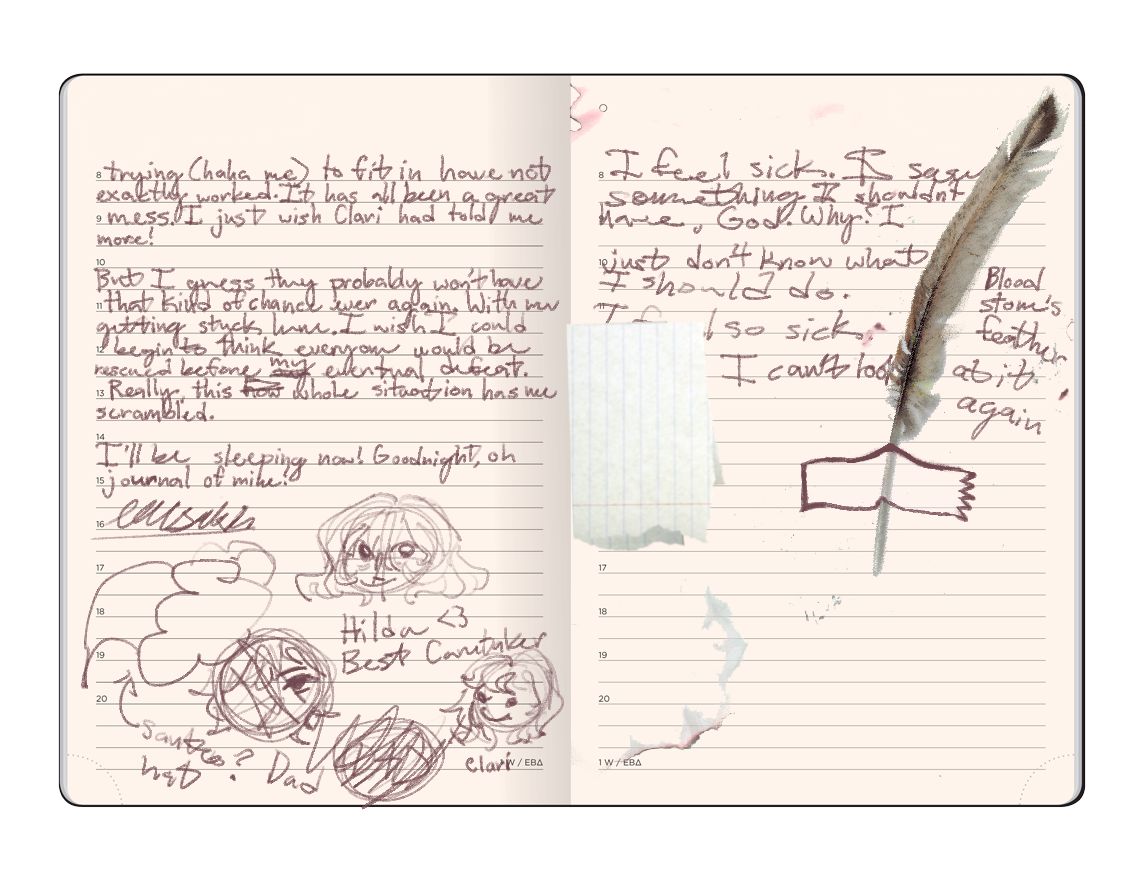 8 trying (haha me) to fit in have not
exactly worked. It has all been a great
9 mess. I just wish Clari had told me
more!
10
But I guess they probably won't have
11 that kind of chance ever again. With me
getting stuck here. I wish I could
12 begin to think everyone would be
rescued before my eventual defeat.
13 Really, this how whole situation has me
scrambled.
14
I'll be sleeping now! Goodnight, oh
15 journal of mine!
16
17
18
Hilda <3
Best Caretaker
19
20
Santa's?
hat
Dad
Clari
W / EB∆
8 I feel sick. I saw
something I shouldnt
have, God. Why? I
10 just don't know what
I should do.
I f l so sick.
I can't look at it
again
Blood
stom's
feather
17
18
19
20
1 W / EB∆